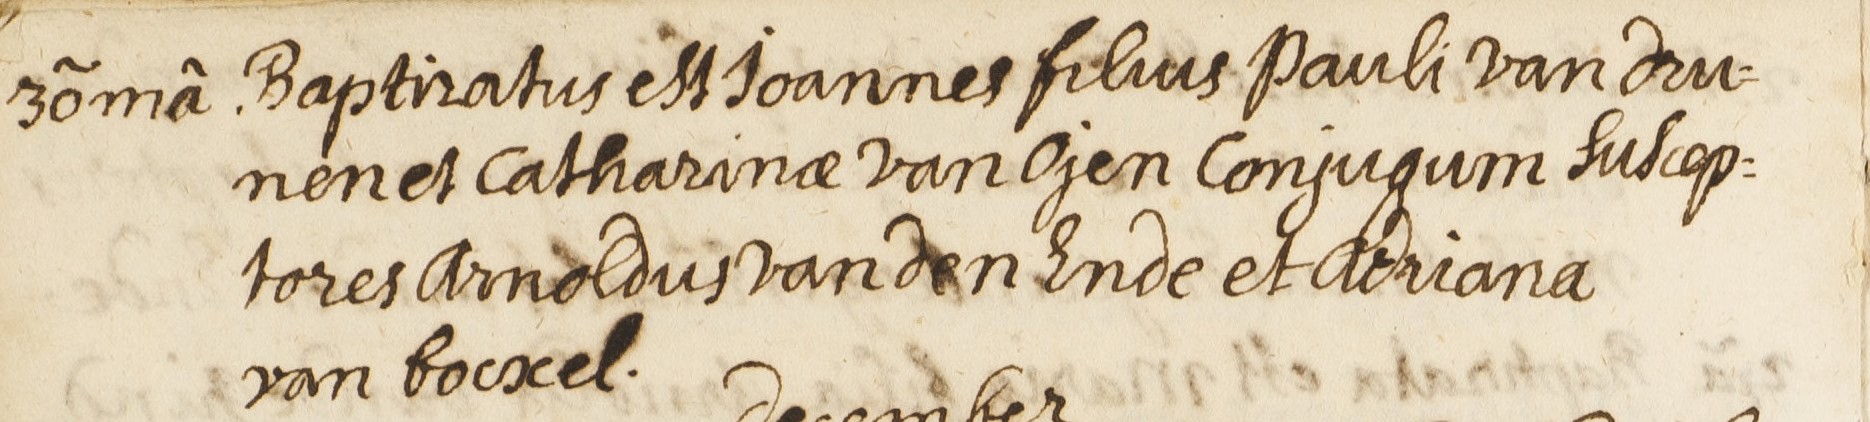 30mâ. Baptizatus est Joannes filius Pauli van dru=
nen et Catharinæ van Ojen Conjugum Suscep=
tores Arnoldus van den Ende et Adriana
van bocxel.
december